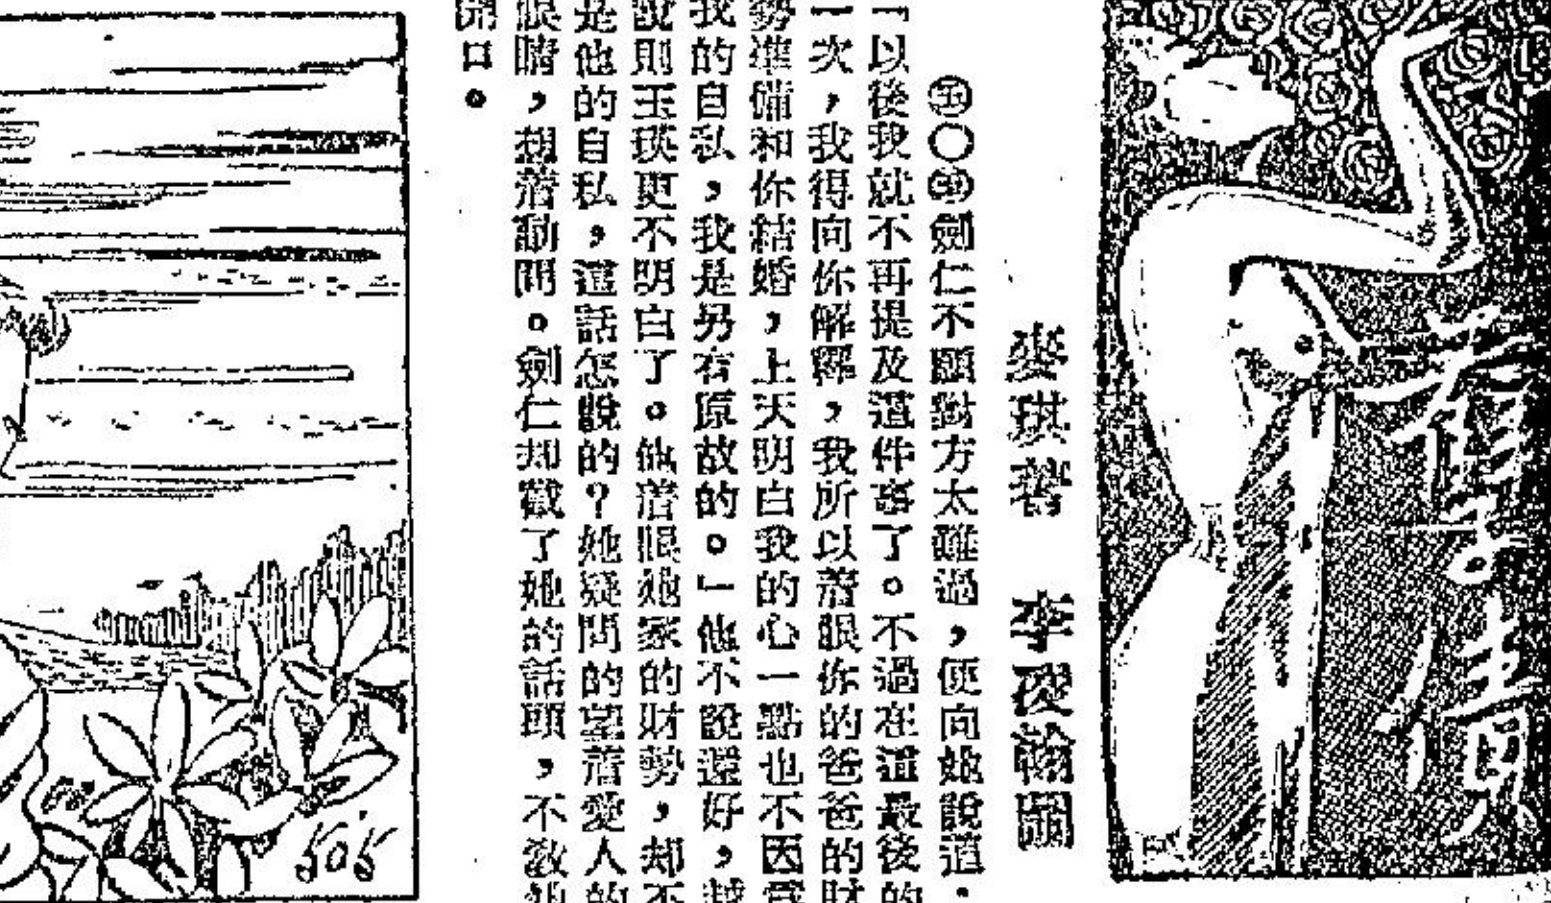 麥琪著　李凌翰圖
㊄〇㊄劍仁不願對方太難過，便向她說道：
「以後我就不再提及這件事了。不過在這最後的
一次，我得向你解釋，我所以着眼你的爸爸的財
勢準備和你結婚，上天明白我的心一點也不因為
我的自私，我是另有原故的。」他不說還好，越
說則玉瑛更不明白了。他着眼她家的財勢，却不
是他的自私，這話怎說的？她疑問的望着愛人的
眼睛，想着動問。劍仁却截了她的話頭，不教她
開口。
505